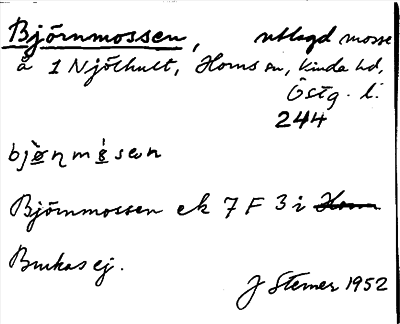 Björnmossen, utlagd mosse
å 1 Njöthult, Horns sn, Kinda hd,
Östg. l.
244
bjö̀ṇmósen
Björnmossen ek 7 F 3 i Horn
Brukas ej.
J Stemer 1952